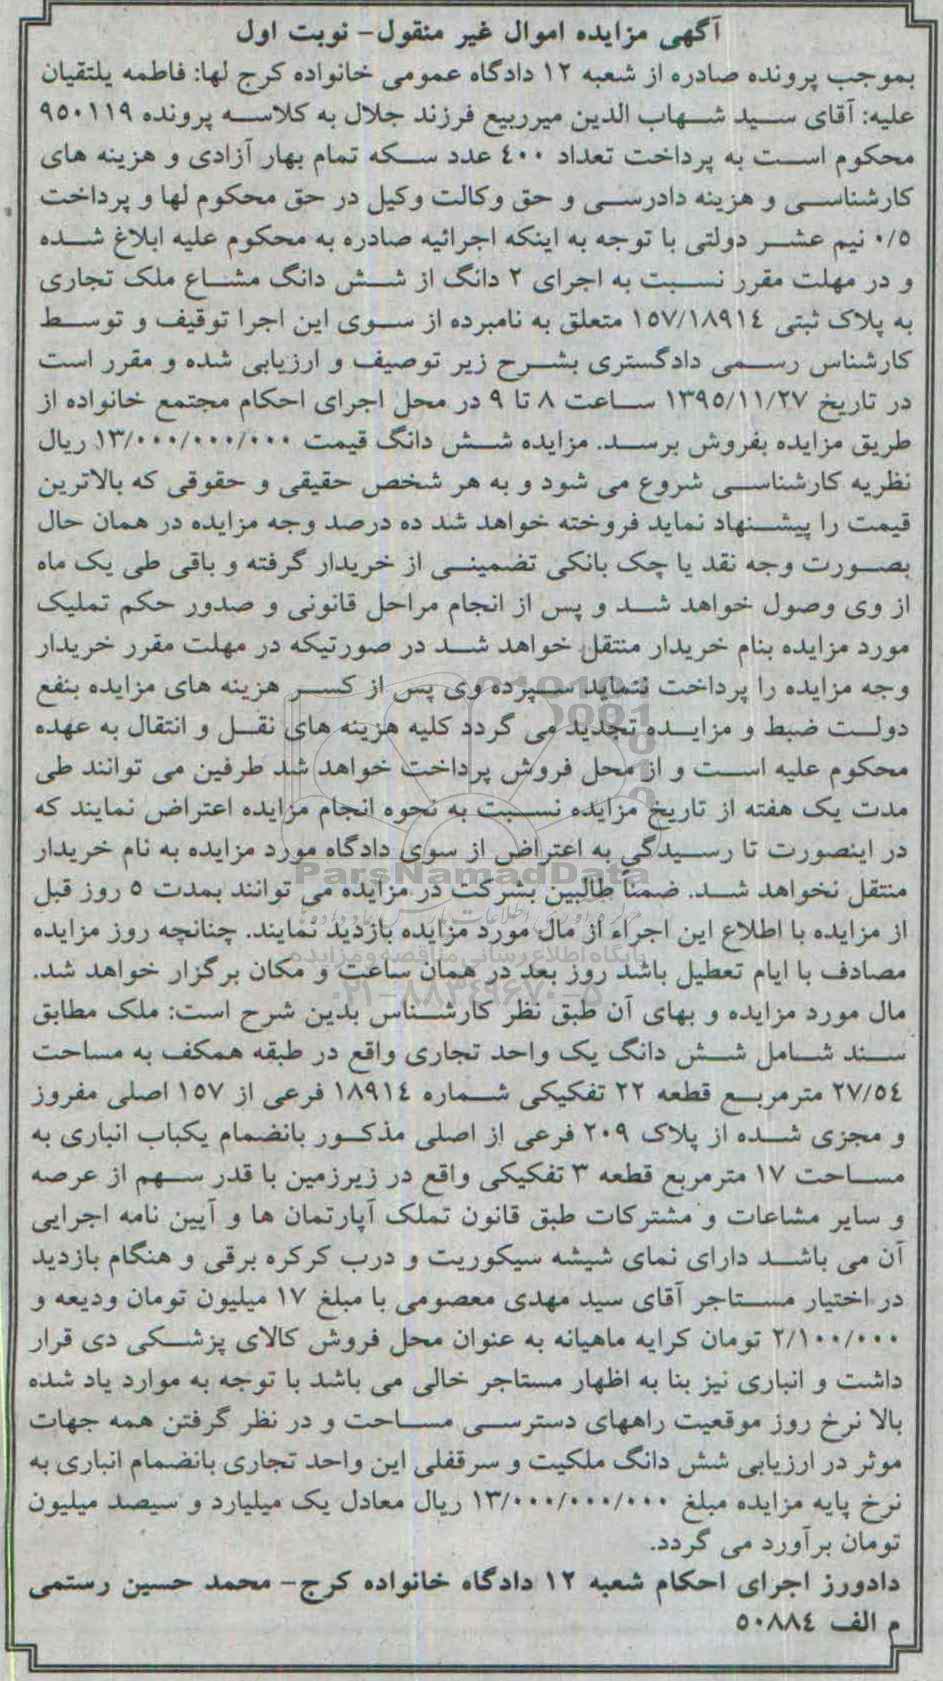 آگهی مزایده اموال غیر منقول- نوبت اول
بموجب پرونده صادره از شعبه ۱۲ دادگاه عمومی خانواده کرج لها: فاطمه یلتقیان
علیه: آقای سید شهاب الدین میرربیع فرزند جلال به کلاسه پرونده ۹۵۰۱۱۹
محکوم است به پرداخت تعداد ۴۰۰ عدد سکه تمام بهار آزادی و هزینه های
کارشناسی و هزینه دادرسی و حق وکالت وکیل در حق محکوم لها و پرداخت
۰/۵ نیم عشر دولتی با توجه به اینکه اجرائیه صادره به محکوم علیه ابلاغ شده
و در مهلت مقرر نسبت به اجرای ۲ دانگ از شش دانگ مشاع ملک تجاری
به پلاک ثبتی ۱۵۷/۱۸۹۱۴ متعلق به نامبرده از سوی این اجرا توقیف و توسط
کارشناس رسمی دادگستری بشرح زیر توصیف و ارزیابی شده و مقرر است
در تاریخ ۱۳۹۵/۱۱/۲۷ ساعت ۸ تا ۹ در محل اجرای احکام مجتمع خانواده از
طریق مزایده بفروش برسد. مزایده شش دانگ قیمت ۱۳/۰۰۰/۰۰۰/۰۰۰ ریال
نظریه کارشناسی شروع می شود و به هر شخص حقیقی و حقوقی که بالاترین
قیمت را پیشنهاد نماید فروخته خواهد شد ده درصد وجه مزایده در همان حال
بصورت وجه نقد یا چک بانکی تضمینی از خریدار گرفته و باقی طی یک ماه
از وی وصول خواهد شد و پس از انجام مراحل قانونی و صدور حکم تملیک
مورد مزایده بنام خریدار منتقل خواهد شد در صورتیکه در مهلت مقرر خریدار
وجه مزایده را پرداخت ننماید سپرده وی پس از کسر هزینه های مزایده بنفع
دولت ضبط و مزایده تجدید می گردد کلیه هزینه های نقل و انتقال به عهده
محکوم علیه است و از محل فروش پرداخت خواهد شد طرفین می توانند طی
مدت یک هفته از تاریخ مزایده نسبت به نحوه انجام مزایده اعتراض نمایند که
در اینصورت تا رسیدگی به اعتراض از سوی دادگاه مورد مزایده به نام خریدار
ParsNamadData
منتقل نخواهد شد. ضمناً طالبین بشرکت در مزایده می توانند بمدت ۵ روز قبل
از مزایده با اطلاع این اجراء از مال مورد مزایده بازدید نمایند. چنانچه روز مزایده
پایگاه اطلاع رسانی مناقصه و مزایده
مصادف با ایام تعطیل باشد روز بعد در همان ساعت و مکان برگزار خواهد شد.
۰۲۱-۸۸۳۴۹۶۷۰-۵
مال مورد مزایده و بهای آن طبق نظر کارشناس بدین شرح است: ملک مطابق
سند شامل شش دانگ یک واحد تجاری واقع در طبقه همکف به مساحت
۲۷/۵۴ مترمربع قطعه ۲۲ تفکیکی شماره ۱۸۹۱۴ فرعی از ۱۵۷ اصلی مفروز
و مجزی شده از پلاک ۲۰۹ فرعی از اصلی مذکور بانضمام یکباب انباری به
مساحت ۱۷ مترمربع قطعه ۳ تفکیکی واقع در زیرزمین با قدر سهم از عرصه
و سایر مشاعات و مشترکات طبق قانون تملک آپارتمان ها و آیین نامه اجرایی
آن می باشد دارای نمای شیشه سیکوریت و درب کرکره برقی و هنگام بازدید
در اختیار مستاجر آقای سید مهدی معصومی با مبلغ ۱۷ میلیون تومان ودیعه و
۲/۱۰۰/۰۰۰ تومان کرایه ماهیانه به عنوان محل فروش کالای پزشکی دی قرار
داشت و انباری نیز بنا به اظهار مستاجر خالی می باشد با توجه به موارد یاد شده
بالا نرخ روز موقعیت راههای دسترسی مساحت و در نظر گرفتن همه جهات
موثر در ارزیابی شش دانگ ملکیت و سرقفلی این واحد تجاری بانضمام انباری به
نرخ پایه مزایده مبلغ ۱۳/۰۰۰/۰۰۰/۰۰۰ ریال معادل یک میلیارد و سیصد میلیون
تومان برآورد می گردد.
دادورز اجرای احکام شعبه ۱۲ دادگاه خانواده کرج- محمد حسین رستمی
م الف ۵۰۸۸۴